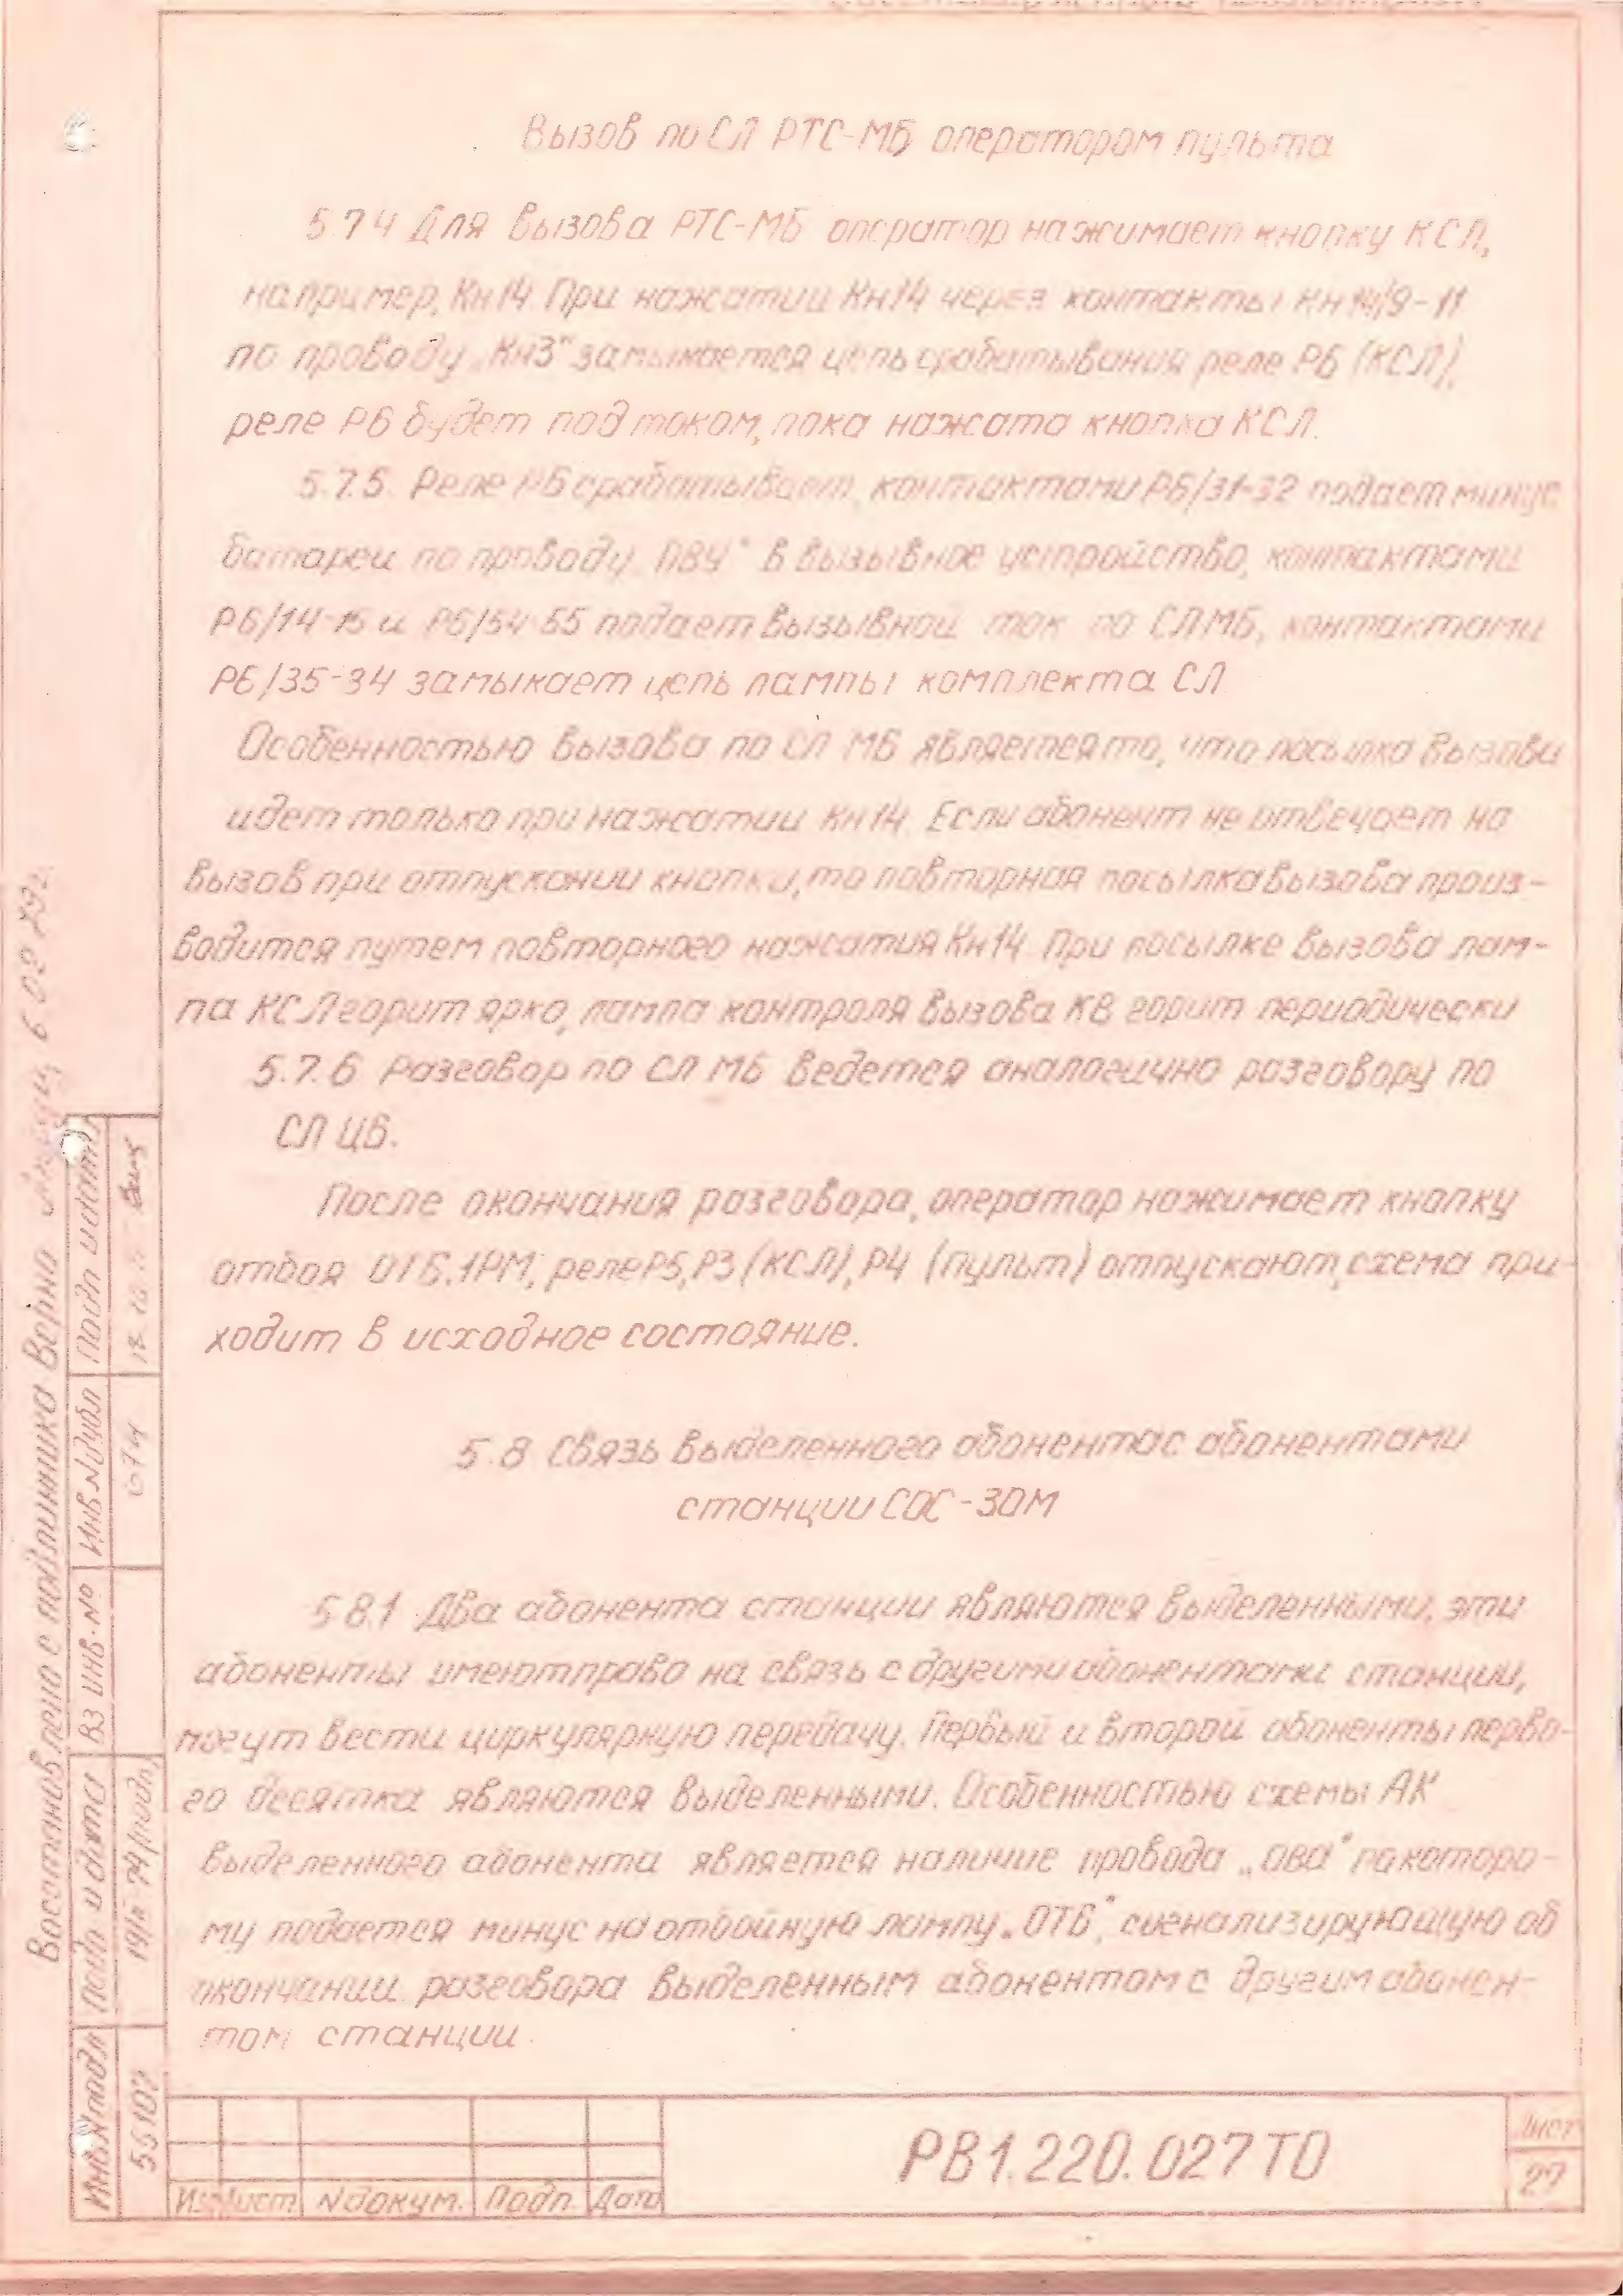 Вызов по СЛ РТС-МБ оператором пульта
5.7.4 Для вызова РТС-МБ оператор нажимает кнопку КСЛ,
например, Кн14. При нажатии Кн14 через контакты Кн14/9-11
по проводу „Кн3" замыкается цепь срабатывания реле Р6 (КСЛ),
реле Р6 будет под током, пока нажата кнопка КСЛ.
5.7.5. Реле Р6 срабатывает, контактами Р6/31-32 подает минус
батареи по проводу „ПВУ" в вызывное устройство, контактами
Р6/14-15 и Р6/54-55 подает вызывной ток по СЛ МБ, контактами
Р6/35-34 замыкает цепь лампы комплекта СЛ.
Особенностью вызова по СЛ МБ является то, что посылка вызова
идет только при нажатии Кн14. Если абонент не отвечает на
вызов при отпускании кнопки, то повторная посылка вызова произ-
водится путем повторного нажатия Кн14. При посылке вызова лам-
па КСЛ горит ярко, лампа контроля вызова КВ горит периодически
5.7.6 Разговор по СЛ МБ ведется аналогично разговору по
СЛ ЦБ.
После окончания разговора, оператор нажимает кнопку
отбоя ОТБ.1РМ, реле Р5, Р3 (КСЛ), Р4 (пульт) отпускают, схема при-
ходит в исходное состояние.
5.8 Связь выделенного абонента с абонентами
станции СОС-30М
5.8.1 Два абонента станции являются выделенными, эти
абоненты имеют право на связь с другими абонентами станции,
могут вести циркулярную передачу. Первый и второй абоненты перво-
го десятка являются выделенными. Особенностью схемы АК
выделенного абонента является наличие провода „ОВА" по которо-
му подается минус на отбойную лампу „ОТБ", сигнализирующую об
окончании разговора выделенным абонентом с другим абонен-
том станции.
Восстановлено с подлинника Верно 6.02.79г.
Подп и дата
Инв.№ дубл
674
Вз инв.№
Подп и дата
19/II 74 /подп/
Инв № подл
55102
Изм Лист № докум. Подп. Дата
РВ1.220.027ТО
Лист
27